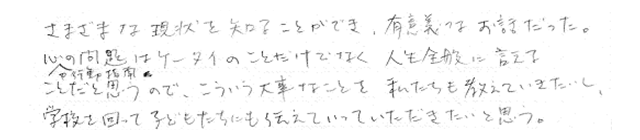 さまざまな現状を知ることができ、有意義なお話だった。
心の問題はケータイのことだけでなく人生全般に言える
行動指南
ことだと思うので、こういう大事なことを私たちも教えていきたいし、
学校を回って子どもたちにも伝えていっていただきたいと思う。